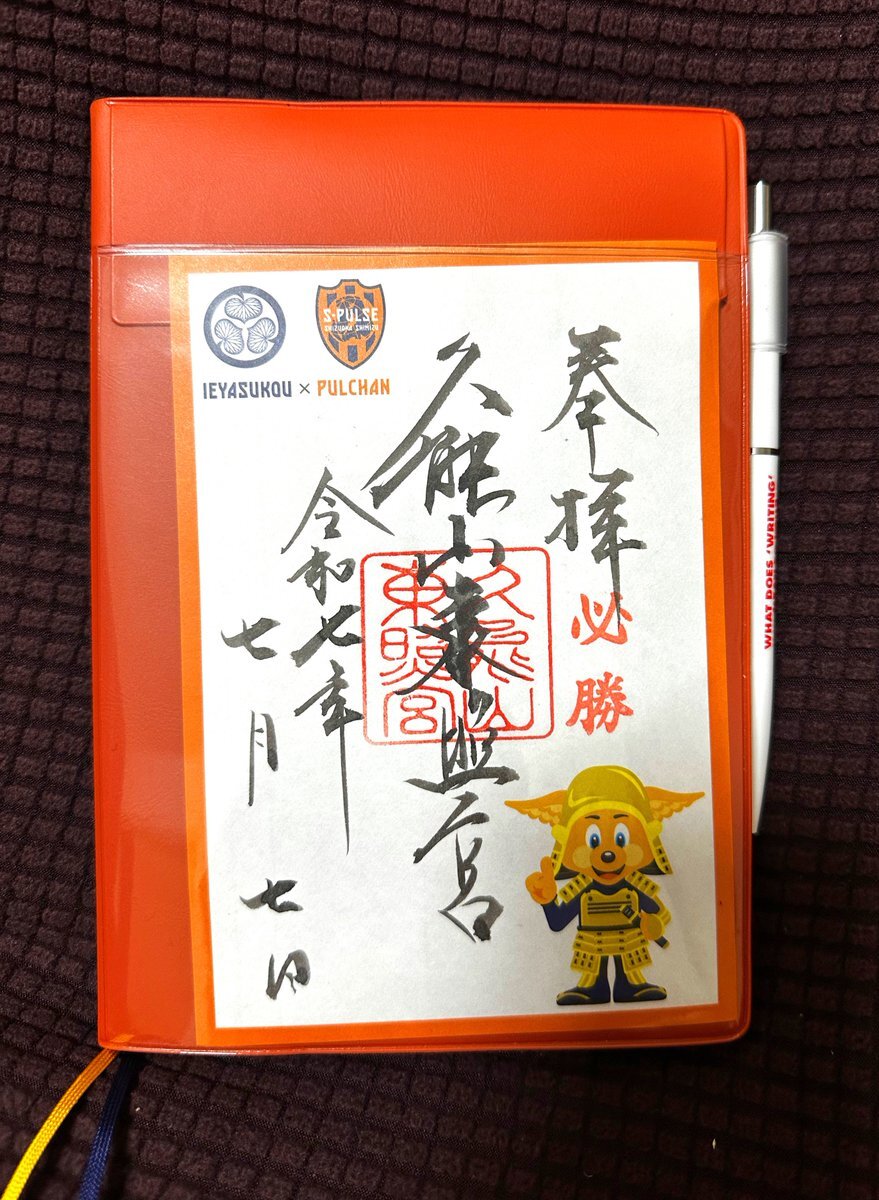 S-PULSE
SHIZUOKA SHIMIZU
IEYASUKOU × PULCHAN
奉拝
必勝
久能山東照宮
久能山
東照宮
令和七年
七月七日
WHAT DOES 'WRITING'